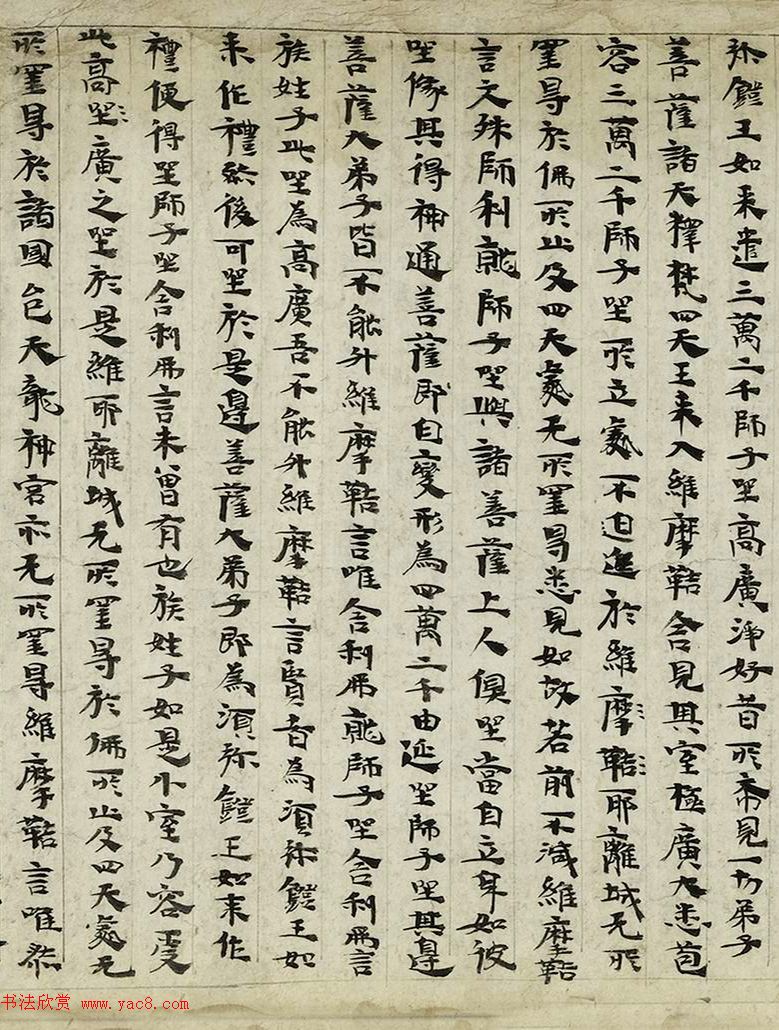 弥鐙王如来遣三萬二千師子㘴高廣淨好昔所希見一切弟子
善薩諸天釋梵四天王来入維摩鞊舍見其室極廣大悉苞
容三萬二千師子㘴所立處不迫迮於維摩鞊耶離城无所
罣导於佛所止及四天處无所罣导悉見如故若前不減維摩鞊
言文殊師利就師子㘴與諸善薩上人俱㘴當自立身如彼
㘴像其得神通善薩即自變形為四萬二千由延㘴師子㘴其邊
善薩大弟子皆不能升維摩鞊言唯舍利弗就師子㘴舍利弗言
族姓子此㘴為高廣吾不能升維摩鞊言賢者為須弥鐙王如
来作禮然後可㘴於是邊善薩大弟子即為須弥鐙王如来作
禮便得㘴師子㘴舍利弗言未曽有也族姓子如是小室乃容受
此高㘴廣之㘴於是維耶離城无所罣导於佛所止及四天處无
所罣导於諸國邑天龍神宮亦无所罣导維摩鞊言唯然
书法欣赏 www.yac8.com